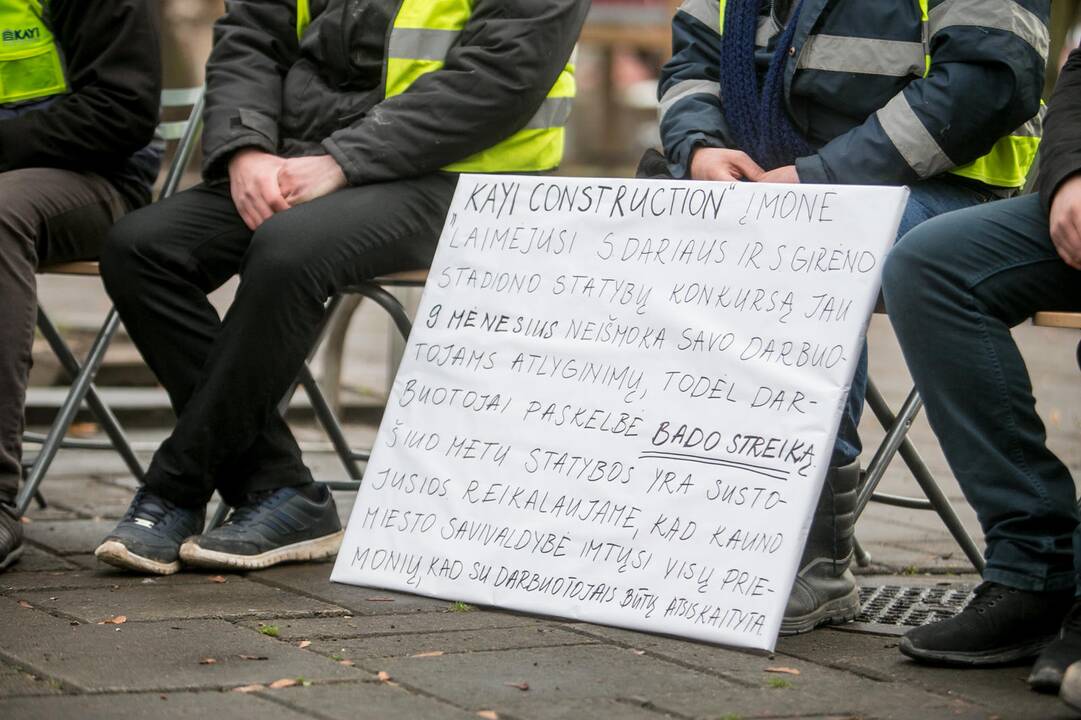 KAYI
„KAYI CONSTRUCTION“ ĮMONĖ
LAIMĖJUSI S.DARIAUS IR S.GIRĖNO
STADIONO STATYBŲ KONKURSĄ JAU
9 MĖNESIUS NEIŠMOKA SAVO DARBUO-
TOJAMS ATLYGINIMŲ, TODĖL DAR-
BUOTOJAI PASKELBĖ BADO STREIKĄ
ŠIUO METU STATYBOS YRA SUSTO-
JUSIOS REIKALAUJAME, KAD KAUNO
MIESTO SAVIVALDYBĖ IMTŲSI VISŲ PRIE-
MONIŲ, KAD SU DARBUOTOJAIS BŪTŲ ATSISKAITYTA.